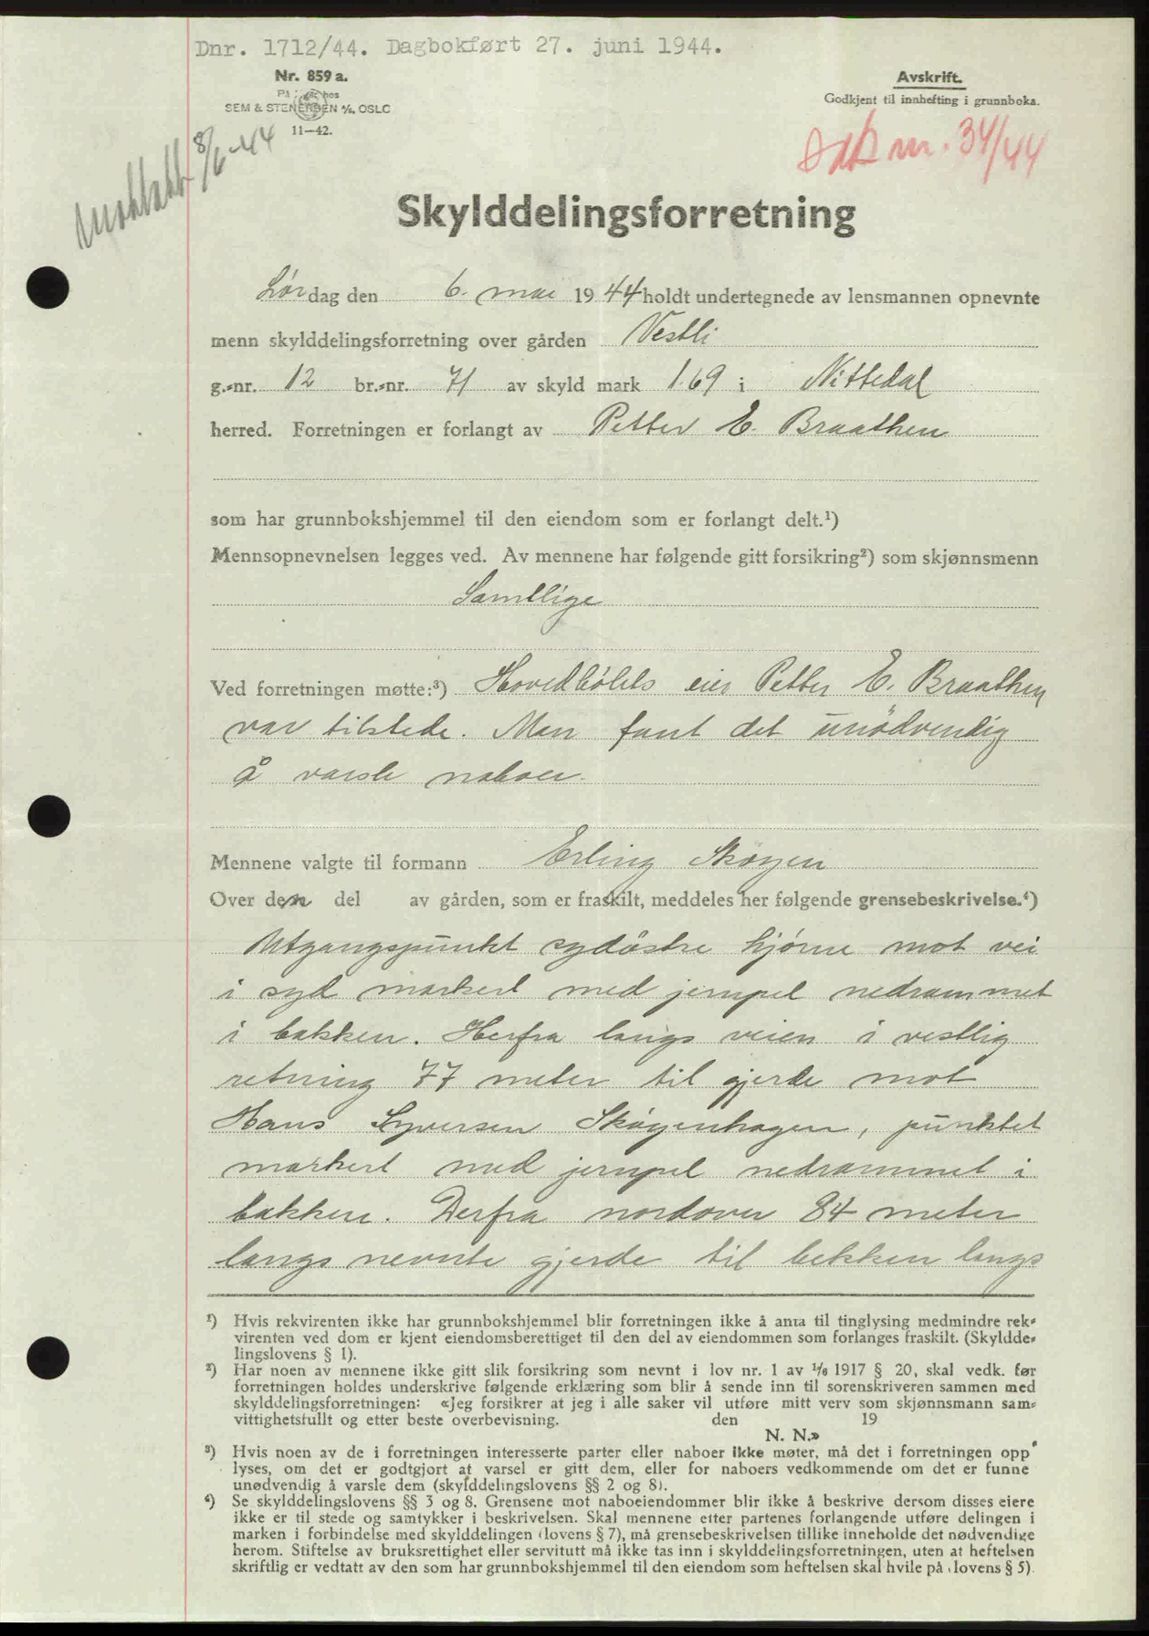 Dnr. 1712/44. Dagbokført 27. juni 1944.
Nr. 859 a.
SEM & STENERSEN A/S, OSLO
11—42.
Avskrift.
Godkjent til innhefting i grunnboka.
8/6-44
nr. 34/44
Skylddelingsforretning
Lørdag den 6. mai 1944 holdt undertegnede av lensmannen opnevnte
menn skylddelingsforretning over gården Vestli
g.-nr. 12 br.-nr. 71 av skyld mark 1.69 i Nittedal
herred. Forretningen er forlangt av Petter E. Braathen
som har grunnbokshjemmel til den eiendom som er forlangt delt.¹)
Mennsopnevnelsen legges ved. Av mennene har følgende gitt forsikring²) som skjønnsmenn
Samtlige
Ved forretningen møtte:³) Hovedbølets eier Petter E. Braathen
var tilstede. Man fant det unødvendig
å varsle naboer.
Mennene valgte til formann Erling Skøyen
Over den del av gården, som er fraskilt, meddeles her følgende grensebeskrivelse.⁴)
Utgangspunkt sydøstre hjørne mot vei
i syd markert med jernpel nedrammet
i bakken. Herfra langs veien i vestlig
retning 77 meter til gjerde mot
Hans Syversen Skøyenhagen, punktet
markert med jernpel nedrammet i
bakken. Derfra nordover 84 meter
langs nevnte gjerde til bekken langs
¹) Hvis rekvirenten ikke har grunnbokshjemmel blir forretningen ikke å anta til tinglysing medmindre rek-
virenten ved dom er kjent eiendomsberettiget til den del av eiendommen som forlanges fraskilt. (Skyldde-
lingslovens § 1).
²) Har noen av mennene ikke gitt slik forsikring som nevnt i lov nr. 1 av 1/6 1917 § 20, skal vedk. før
forretningen holdes underskrive følgende erklæring som blir å sende inn til sorenskriveren sammen med
skylddelingsforretningen: «Jeg forsikrer at jeg i alle saker vil utføre mitt verv som skjønnsmann sam-
vittighetsfullt og etter beste overbevisning. den 19
N. N.»
³) Hvis noen av de i forretningen interesserte parter eller naboer ikke møter, må det i forretningen opp-
lyses, om det er godtgjort at varsel er gitt dem, eller for naboers vedkommende om det er funne
unødvendig å varsle dem (skylddelingslovens §§ 2 og 8).
⁴) Se skylddelingslovens §§ 3 og 8. Grensene mot naboeiendommer blir ikke å beskrive dersom disses eiere
ikke er til stede og samtykker i beskrivelsen. Skal mennene etter partenes forlangende utføre delingen i
marken i forbindelse med skylddelingen (lovens § 7), må grensebeskrivelsen tillike inneholde det nødvendige
herom. Stiftelse av bruksrettighet eller servitutt må ikke tas inn i skylddelingsforretningen, uten at heftelsen
skriftlig er vedtatt av den som har grunnbokshjemmel til den eiendom som heftelsen skal hvile på (lovens § 5).